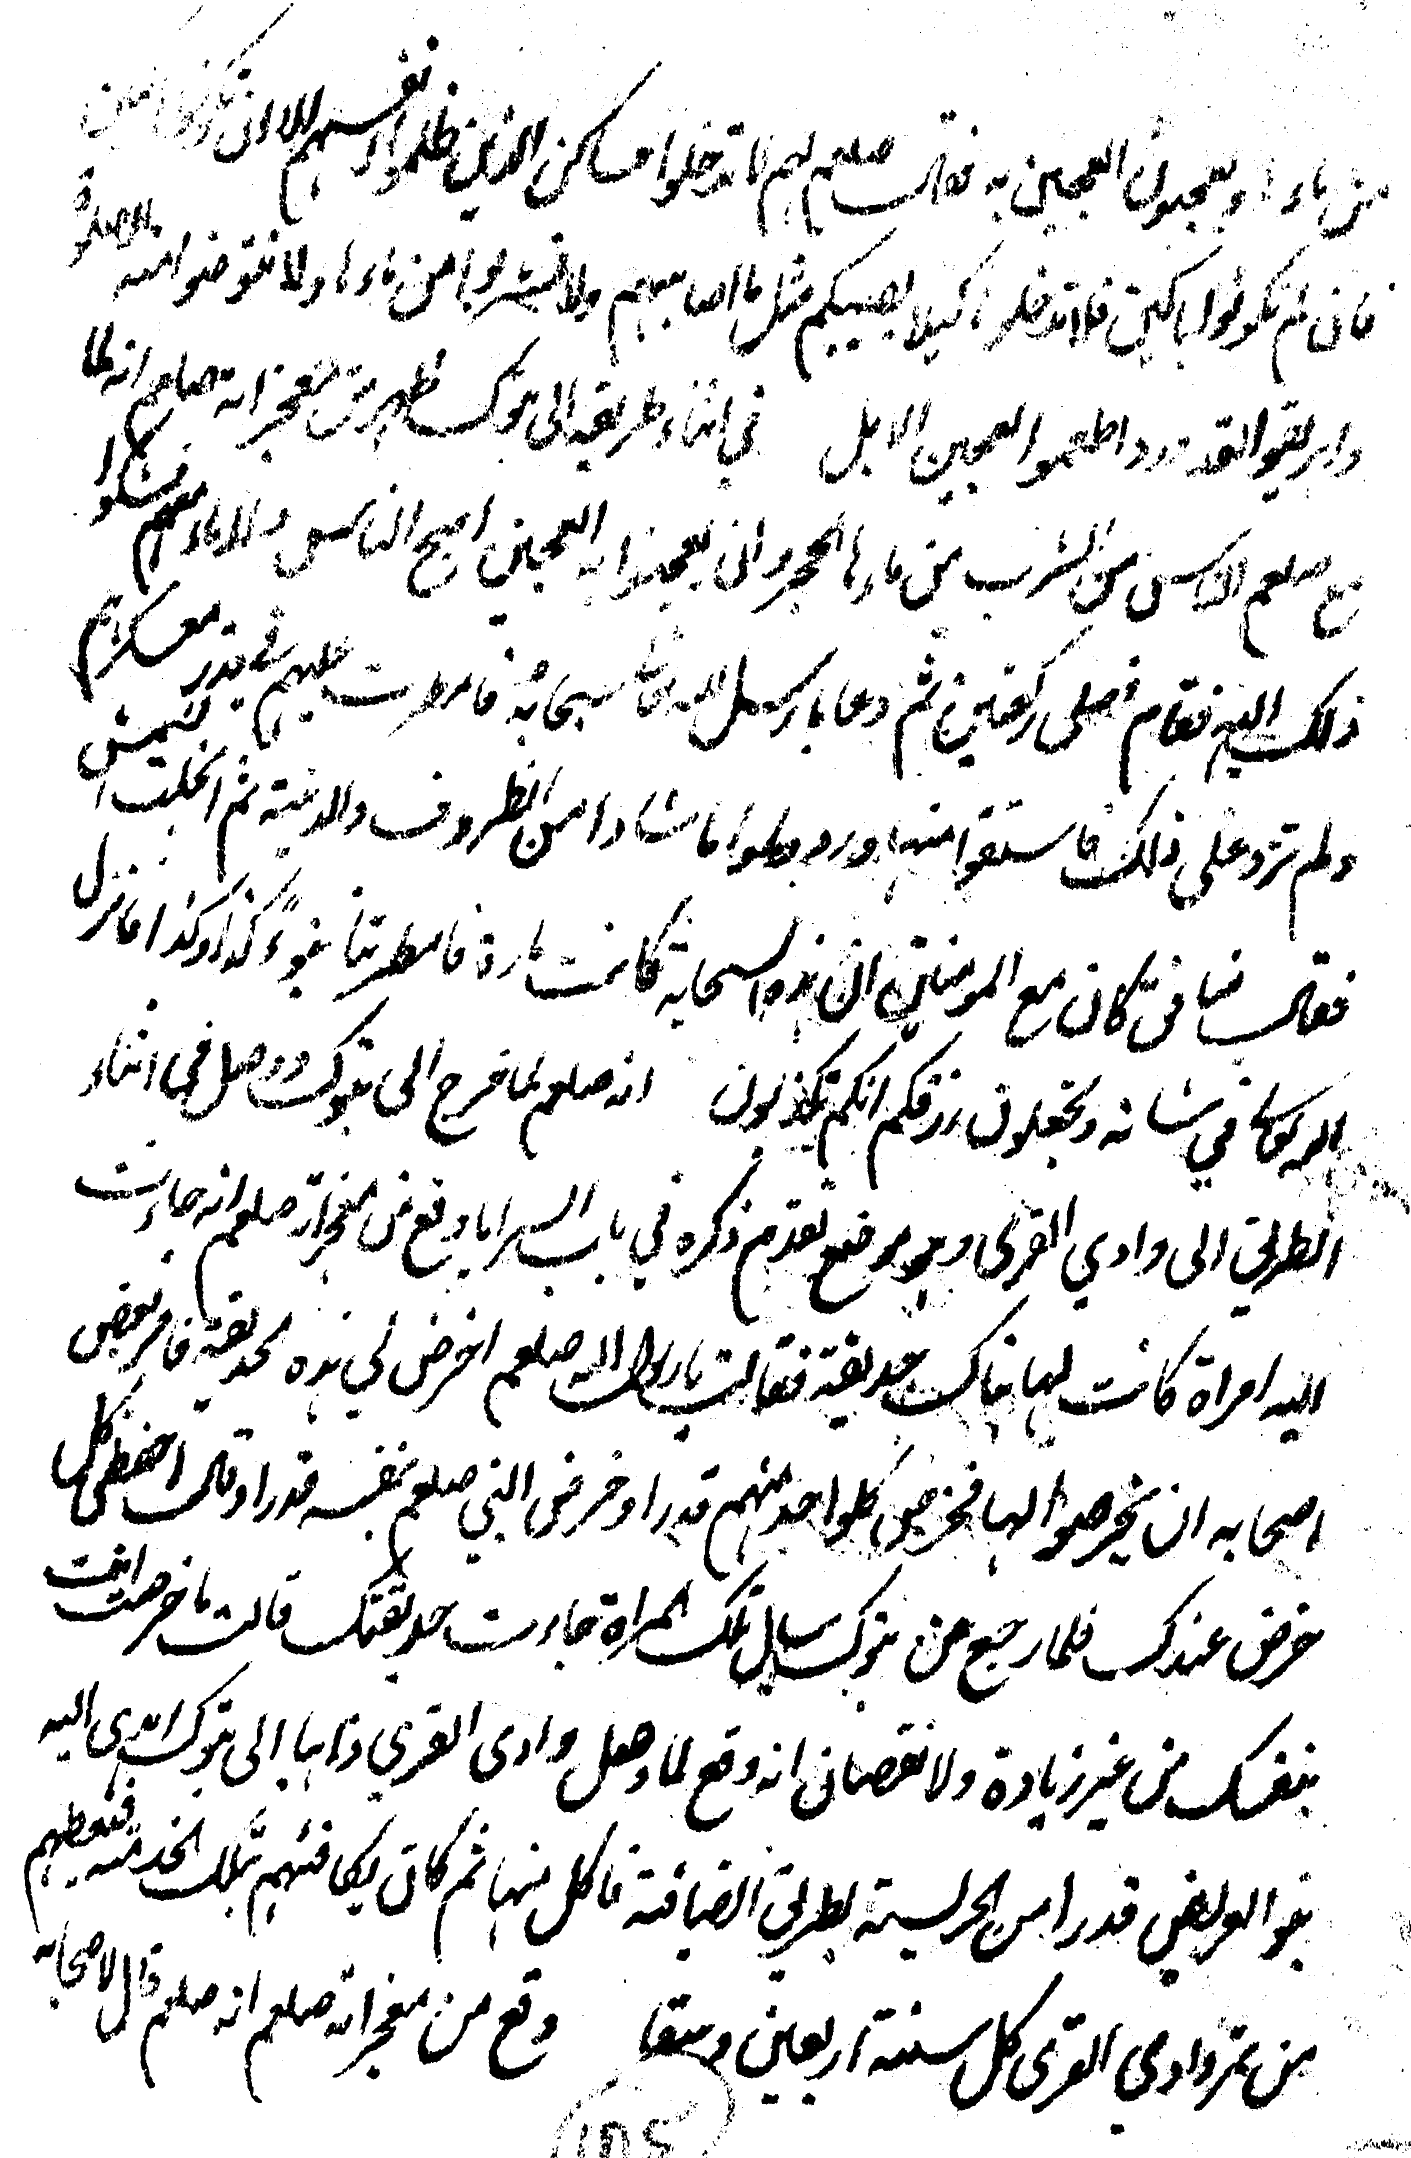 من ماءها ويعجنون العجين به فقال صلعم لهم لا تدخلوا مساكن الذين ظلموا انفسهم الا ان تكونوا باكين
فان لم تكونوا باكين فلا تدخلوا كيلا يصيبكم مثل ما اصابهم ولا تشربوا من ماءها ولا تتوضوا منه للصلوة
واهريقوا القدور واطعموا العجين الابل في اثناء طريقه الى تبوك ظهر من معجزاته صلعم انه لما
منع صلعم الناس من الشرب من ماءها الحجر وان يعجنوا به العجين اصبح الناس ولا ماء معهم فشكوا
ذلك اليه فقام فصلى ركعتين ثم دعا فارسل الله تعالى سبحابة فامطرت عليهم في قدر معسكرهم
ولم تزد على ذلك فاستقوا منها ورووا وملوا ما شاءوا من الظروف والاوعية ثم انجلت الشمس
فقال منافق كان مع المومنين ان هذه السحابة كانت مارة فامطرتنا بنوء كذا وكذا فانزل
الله تعالى في شانه وتجعلون رزقكم انكم تكذبون انه صلعم لما خرج الى تبوك ووصل في اثناء
الطريق الى وادي القرى وهو موضع تقدم ذكره في باب السرايا وقع من معجزاته صلعم انه جاءت
اليه امراة كانت لها هناك حديقة فقالت يا رسول الله صلعم اخرص لي هذه الحديقة فامر بعض
اصحابه ان يخرصوا لها فخرص كلواحد منهم قدرا وخرص النبي صلعم بنفسه قدرا وقال احفظي كل
خرص عندك فلما رجع من تبوك سال تلك المراة جاءت حديقتك قالت ما خرصت انت
بنفسك من غير زيادة ولا نقصان انه وقع لما وصل وادى القرى ذاهبا الى تبوك اهدى اليه
بنو العريض قدرا من الهريسة بطريق الضيافة فاكل منها ثم كان يكافئهم بتلك الخدمة فيعطيهم
من تمر وادي القرى كل سنة اربعين وسقا وقع من معجزاته صلعم انه صلعم قال لاصحابه